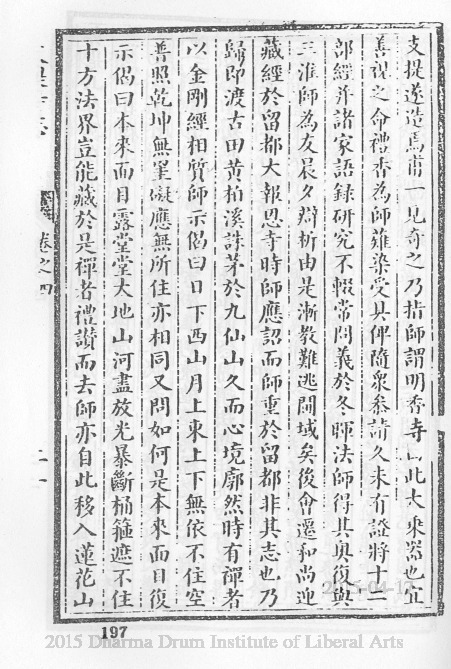 支提遂造焉甫一見奇之乃指師謂明香寺 此大乘器也宜
善視之命禮香為師薙染受具俾隨衆叅請久未有證將十二
部經并諸家語録研究不輟常問義於冬暉法師得其奥復與
三淮師為友晨夕辯析由是漸教難逃閫域矣後會遷和尚迎
藏經於留都大報恩寺時師應詔而師重於留都非其志也乃
歸即渡古田黄柏溪誅茅於九仙山久而心境廓然時有禪者
以金剛經相質師示偈曰日下西山月上東上下無依不住空
普照乾坤無罣礙應無所住亦相同又問如何是本來面目復
示偈曰本來面目露堂堂大地山河盡放光暴斷桶箍遮不住
十方法界豈能藏於是禪者禮讃而去師亦自此移入蓮花山
卷之四
197
2015-04-1
2015 Dharma Drum Institute of Liberal Arts